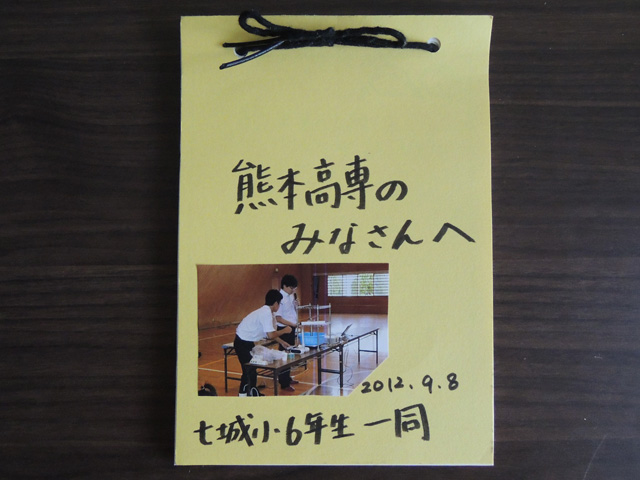 熊本高専の
みなさんへ
2012.9.8
七城小・6年生一同